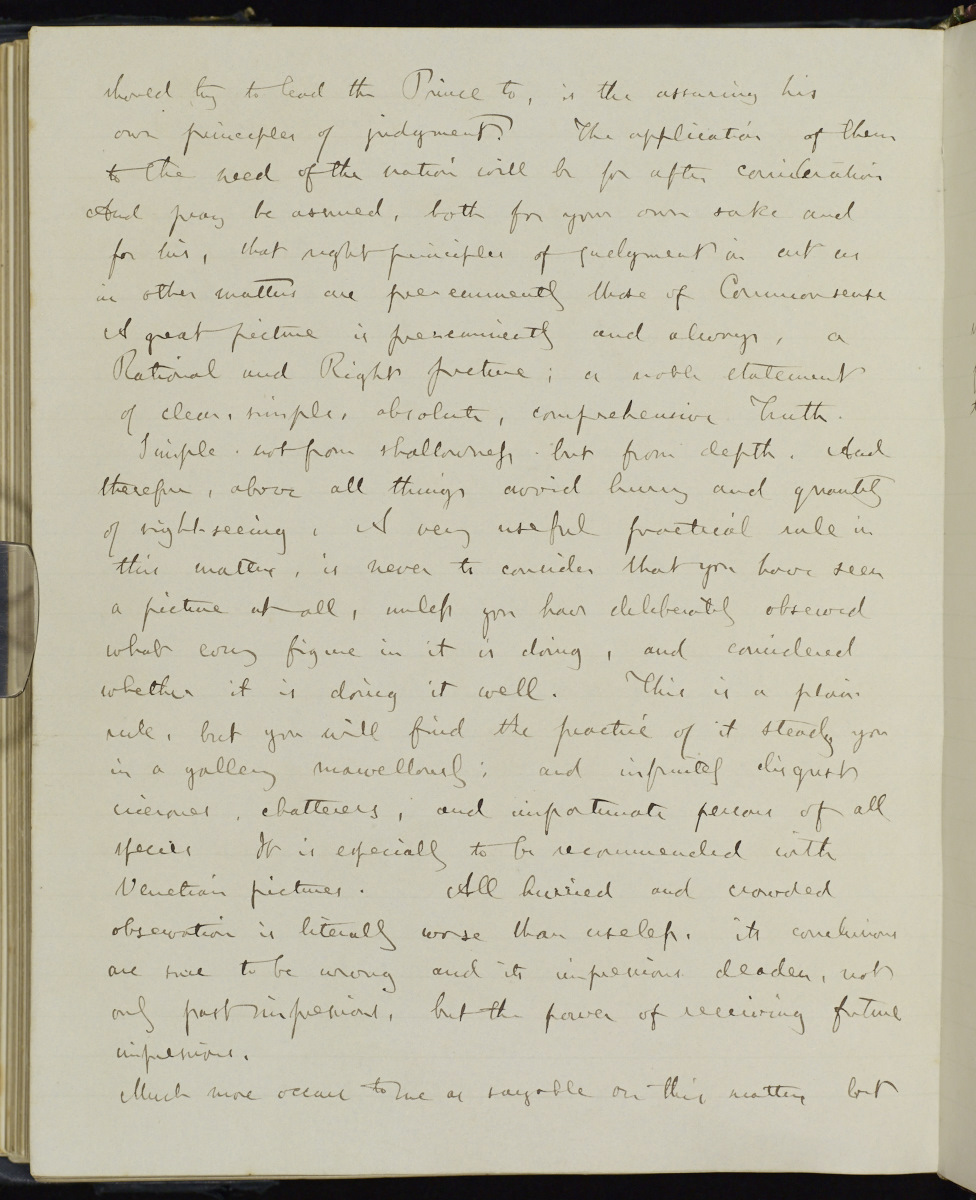 should try to lead the Prince to, is the assuring his
own principles of judgment? The application of them
to the need of the nation will be for after consideration
And pray be assured, both for your own sake and
for his, that right principles of judgment in art as
in other matters are pre-eminently those of Commonsense
A great picture is preeminently and always, a
Rational and Right picture; a noble statement
of clear, simple, absolute, comprehensive Truth.
Simple. not from shallowness. but from depth. And
therefore, above all things avoid hurry and quantity
of sight-seeing, A very useful practical rule in
this matter, is never to consider that you have seen
a picture at all, unless you have deliberately observed
what every figure in it is doing, and considered
whether it is doing it well. This is a plain
rule, but you will find the practice of it steady you
in a gallery marvellously; and infinitely disgust
cicerones, chatterers, and importunate persons of all
species It is especially to be recommended with
Venetian pictures. All hurried and crowded
observation is literally worse than useless. its conclusions
are sure to be wrong and its impressions deaden, not
only past impressions, but the power of receiving future
impressions.
Much more occurs to me as sayable on this matter but